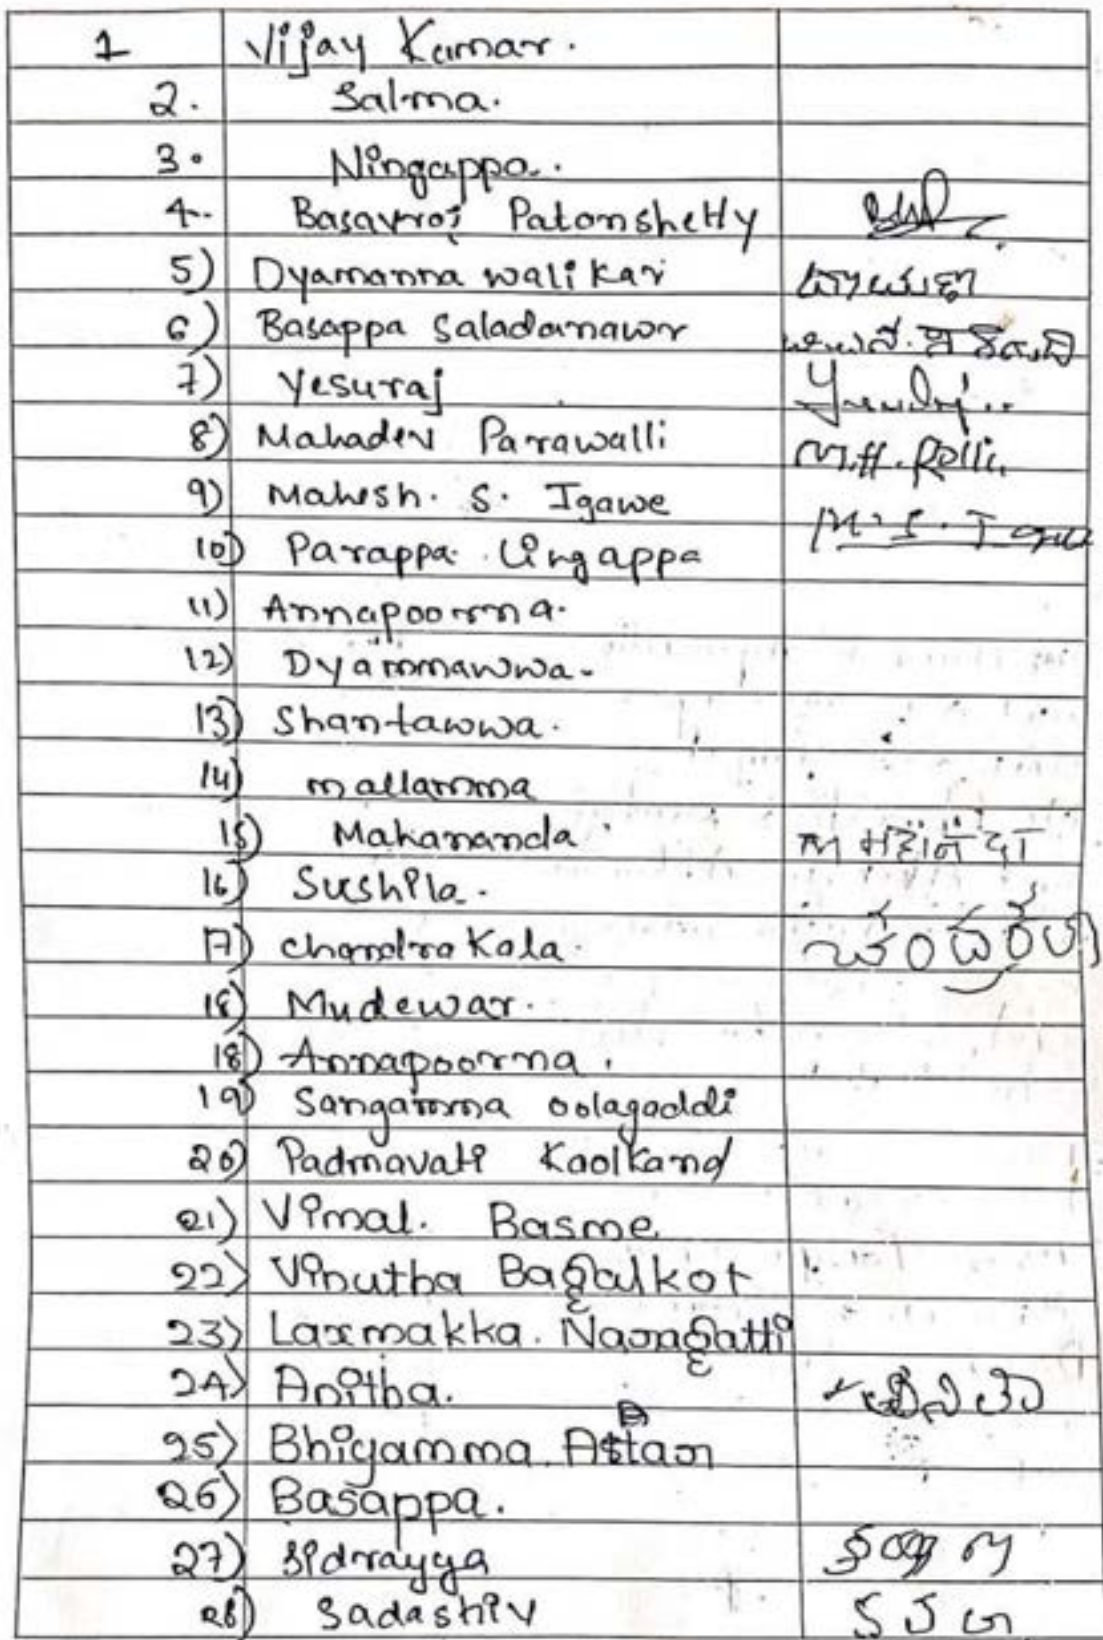 1 Vijay Kumar.
2. Salma.
3. Ningappa.
4. Basavraj Patanshetty
5) Dyamanna walikar
6) Basappa Saladanawar
7) Yesuraj
8) Mahadev Parawalli M.H. Rolli.
9) Mahesh. S. Igawe M. S. I
10) Parappa. Lingappa
11) Annapoorna.
12) Dyammawwa.
13) Shantawwa.
14) mallamma
15) Mahananda
16) Sushila.
17) chandrakala.
18) Mudewar.
18) Annapoorna.
19) Sangamma oolagaddi
20) Padmavati Kaolkand
21) Vimal. Basme.
22) Vinutha Bagalkot
23) Laxmakka. Naragatti
24) Anitha.
25) Bhigamma
26) Basappa.
27) Sidrayya
28) Sadashiv